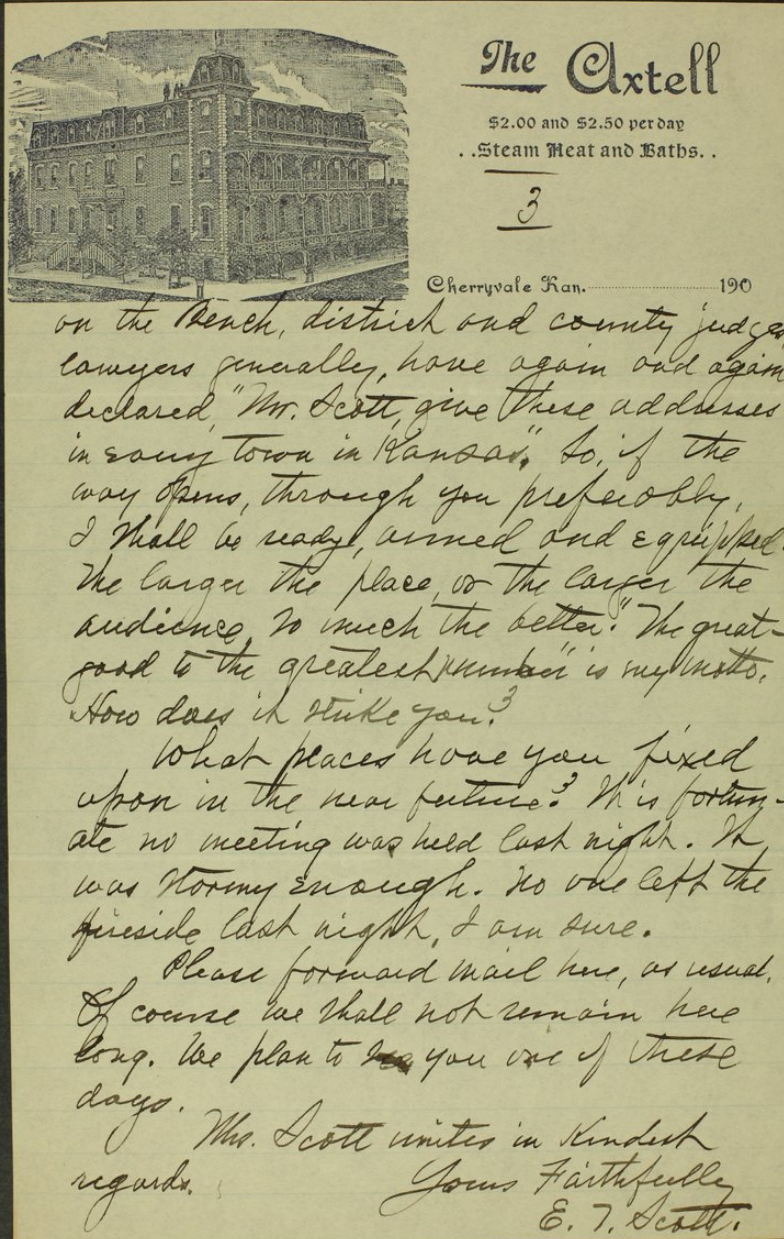 The Axtell
$2.00 and $2.50 per day
. . Steam Heat and Baths. . .
3
Cherryvale Kan. 190
on the Bench, district and county judges
lawyers generally, have again and again
declared, "Mr. Scott, give these addresses
in every town in Kansas". So, if the
way opens, through you preferably,
I shall be ready, armed and equipped.
The larger the place, or the larger the
audience, so much the better. "The great-
good to the greatest number" is my motto.
How does it strike you?
What places have you fixed
upon in the near future? It is fortun-
ate no meeting was held last night. It
was stormy enough. No one left the
fireside last night, I am sure.
Please forward mail here, as usual.
Of course we shall not remain here
long. We plan to see you one of these
days.
Mrs. Scott unites in Kindest
regards.
Yours Faithfully
E. T. Scott.